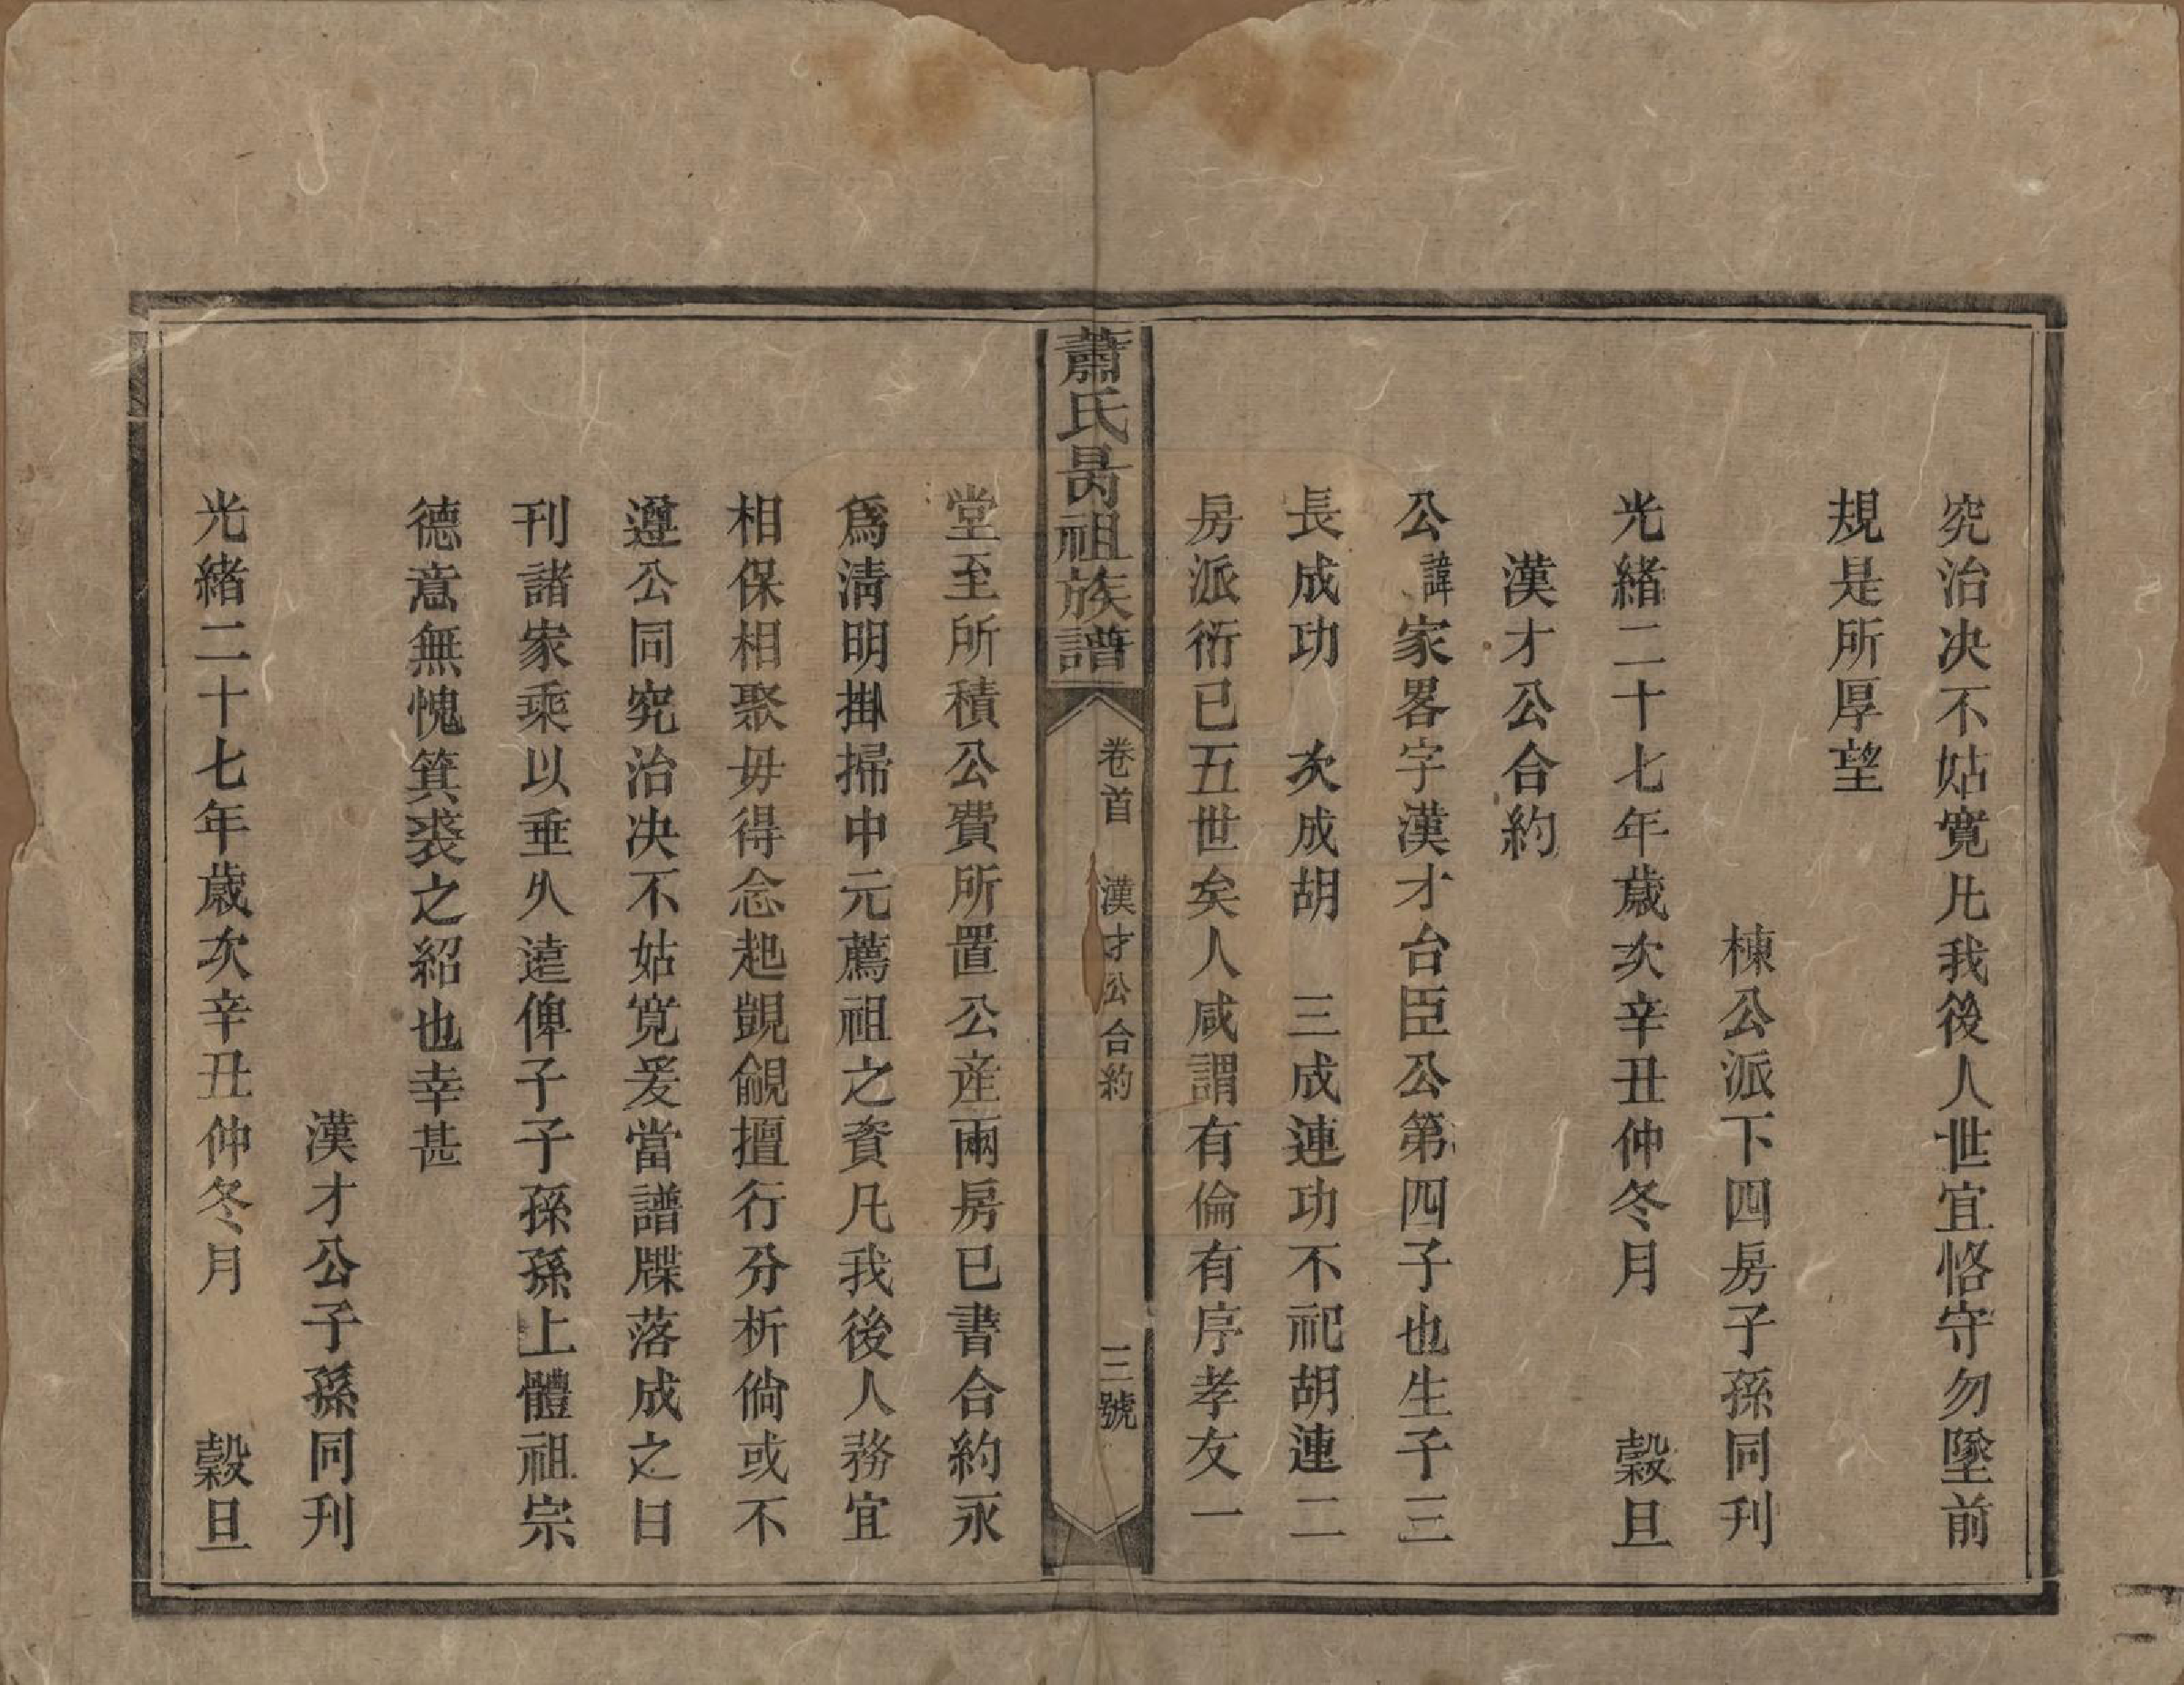 究治決不姑寬凡我後人世宜恪守勿墜前
規是所厚望
棟公派下四房子孫同刋
光緒二十七年歲次辛丑仲冬月 穀旦
漢才公合約
公諱家畧字漢才台臣公第四子也生子三
長成功 次成胡 三成連功不祀胡連二
房派衍已五世矣人咸謂有倫有序孝友一
蕭氏昺祖族譜 卷首 漢才公合約 三號
堂至所積公費所置公産兩房已書合約永
爲淸明掛掃中元薦祖之資凡我後人務宜
相保相聚毋得念起覬覦擅行分析倘或不
遵公同究治決不姑寬爰當譜牒落成之日
刋諸家乘以垂久遠俾子子孫孫上體祖宗
德意無愧箕裘之紹也幸甚
漢才公子孫同刋
光緒二十七年歲次辛丑仲冬月 穀旦